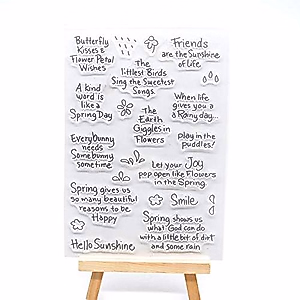 Butterfly
Kisses &
Flower Petal
Wishes
Friends
are the Sunshine
of Life
The
littlest Birds
Sing the Sweetest
Songs
A kind
word is
like a
Spring Day
When life
gives you a
a Rainy day...
The
Earth
Giggles in
Flowers
Every bunny
needs
Some bunny
sometime
play in the
puddles!
Let your Joy
pop open like Flowers
in the Spring
Spring gives us
so many beautiful
reasons to be
Happy
Smile
Spring shows us
what God can do
with a little bit of dirt
and some rain
Hello Sunshine